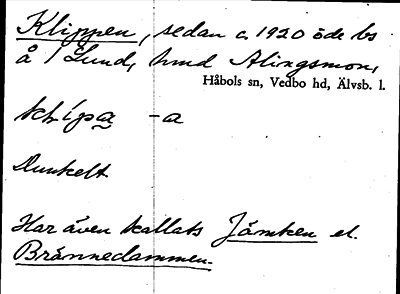 Klippen, sedan c. 1920 öde bs
å 1 Lund, hmd Alingsmon,
Håbols sn, Vedbo hd, Älvsb. l.
-a
Dunkelt
Har även kallats Jämken el.
Brännedammen.